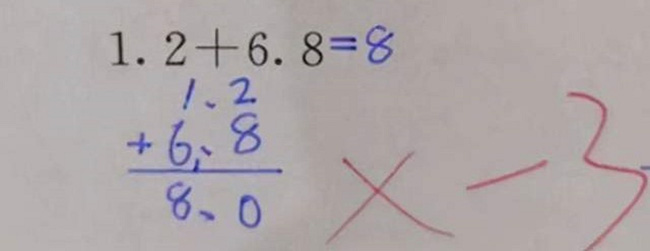 1. 2+6. 8=8
1.2
+ 6.8
8.0
× −3